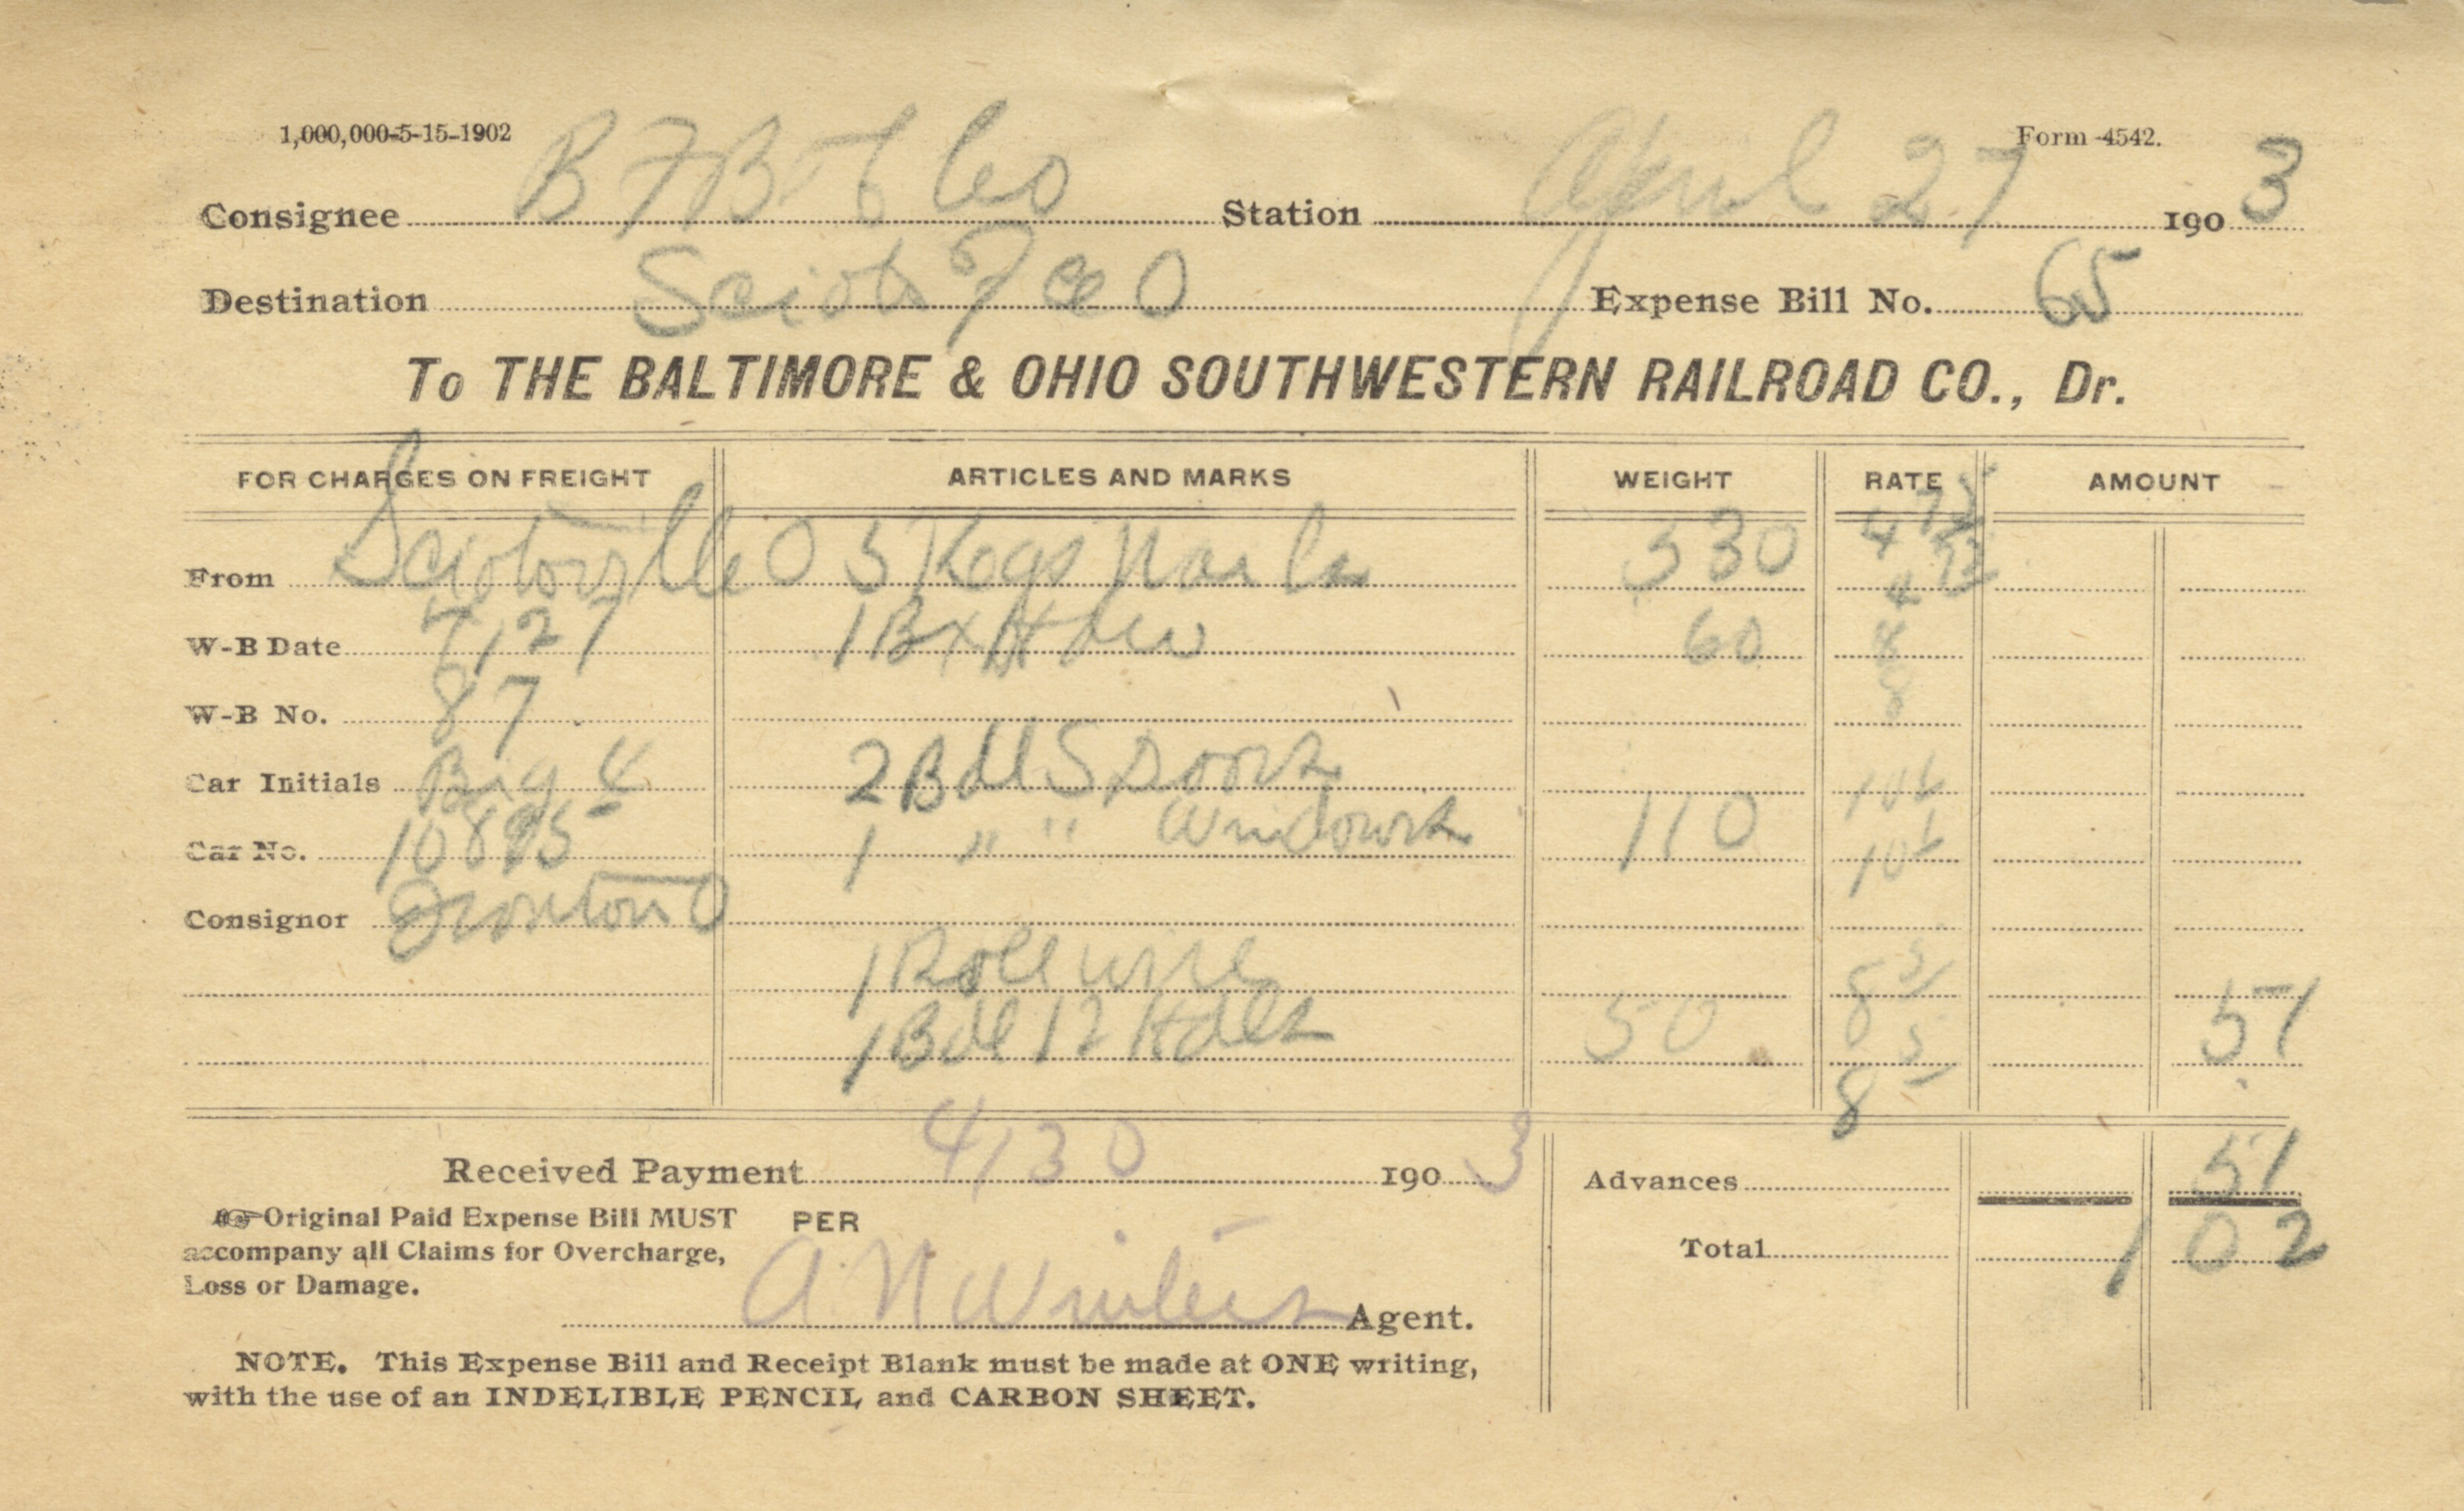 1,000,000-5-15-1902 Form 4542.
Consignee B F B & Co Station April 27 1903
Destination Scioto Fce O Expense Bill No. 65
To THE BALTIMORE & OHIO SOUTHWESTERN RAILROAD CO., Dr.
FOR CHARGES ON FREIGHT ARTICLES AND MARKS WEIGHT RATE AMOUNT
From Sciotoville O 5 Kegs Nails 530
W-B Date 1 Bx Hdw 60 8
W-B No. 87 8
Car Initials Big 4 2 Bdl S Doors
Car No. 1 " " Windows 110
Consignor Ironton O
1 Roll wire 8
1 Bdl 12 Hdls 50 51
8
Received Payment 4/30 1903 Advances 51
Original Paid Expense Bill MUST PER
accompany all Claims for Overcharge, Total 1 02
Loss or Damage.
A. N Winters Agent.
NOTE. This Expense Bill and Receipt Blank must be made at ONE writing,
with the use of an INDELIBLE PENCIL and CARBON SHEET.